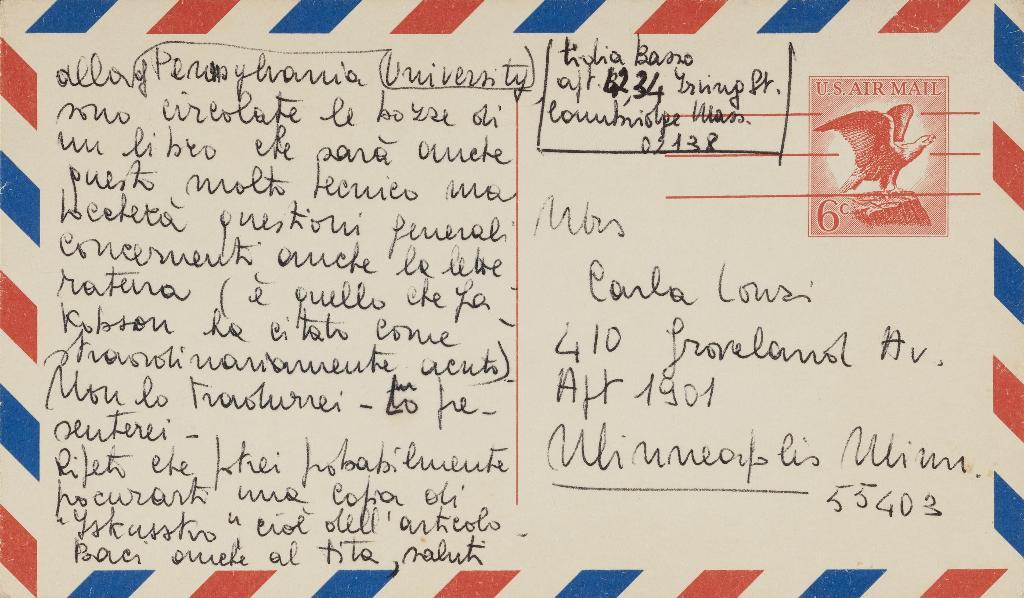 alla Pennsylvania (University)
sono circolate le bozze di
un libro che sarà anche
questo molto tecnico ma
toccherà questioni generali
concernenti anche la lette
ratura (è quello che Ja-
kobson ha citato come
straordinariamente acuto)
Non lo tradurrei - lo pre-
senterei -
Ripeto che potrei probabilmente
procurarti una copia di
"Iskusstvo" cioè dell'articolo -
Baci anche al Tita, saluti
Lidia Basso
apt. 34 Irving St.
Cambridge Mass.
02138
U.S. AIR MAIL
6c
Mrs
Carla Lonzi
410 Groveland Av.
Apt 1901
Minneapolis Minn.
55403